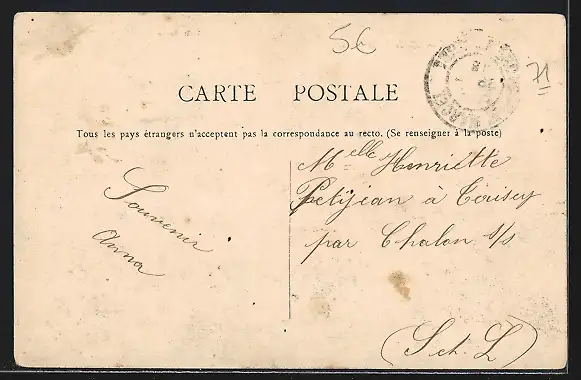 56
71
CARTE POSTALE
Tous les pays étrangers n'acceptent pas la correspondance au recto. (Se renseigner à la poste)
Souvenir
Anna
Melle Henriette
Petijean à
par Chalon s/s
(S et L)